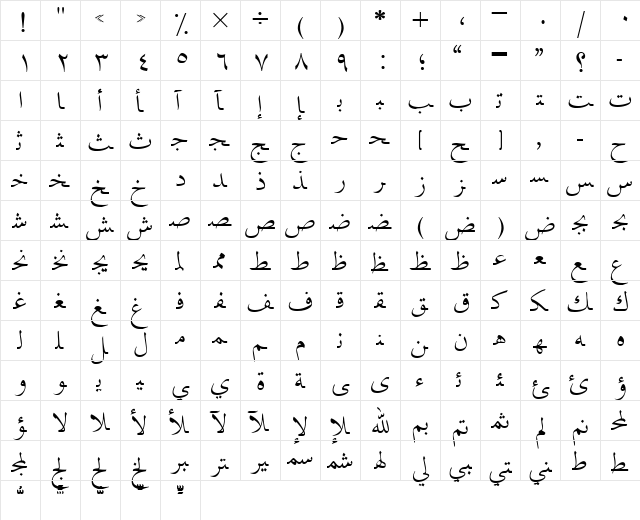 ! " « » ٪ × ÷ ( ) * + ، – . / ٠
١ ٢ ٣ ٤ ٥ ٦ ٧ ٨ ٩ : ؛ “ - ” ؟ -
ا ـا أ ـأ آ ـآ إ ـإ بـ ـبـ ـب ب تـ ـتـ ـت ت
ثـ ـثـ ـث ث جـ ـجـ ـج ج حـ ـحـ [ ـح ] , - ح
خـ ـخـ ـخ خ د ـد ذ ـذ ر ـر ز ـز سـ ـسـ ـس س
شـ ـشـ ـش ش صـ ـصـ ـص ص ضـ ـضـ ( ـض ) ض بج بج
نح نخ يج يح لم مم ـط ط ظ ـظ ـظ ظ عـ ـعـ ـع ع
غـ ـغـ ـغ غ فـ ـفـ ـف ف قـ ـقـ ـق ق كـ ـكـ ـك ك
لـ ـلـ ـل ل مـ ـمـ ـم م نـ ـنـ ـن ن هـ ـهـ ـه ه
و ـو يـ ـيـ ـي ي ة ـة ى ـى ء ئـ ـئـ ـئ ئ ؤ
ـؤ لا لا ـلا لأ ـلأ لآ ـلآ لإ ـلإ لله بم تم ثم لم نم لمح
لمج لج لح لخ بر تر ير سم شم له لي بي تي ني ط ـط